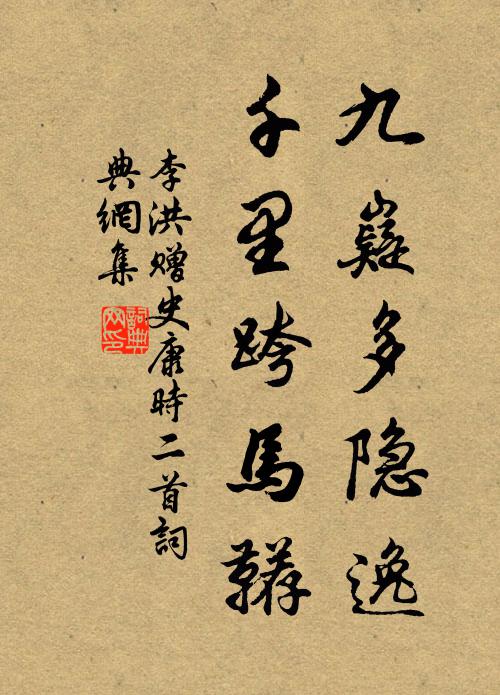 九嶷多隐逸
千里跨馬鞯
李洪贈史康時二首詞
典網集
詞典
网印